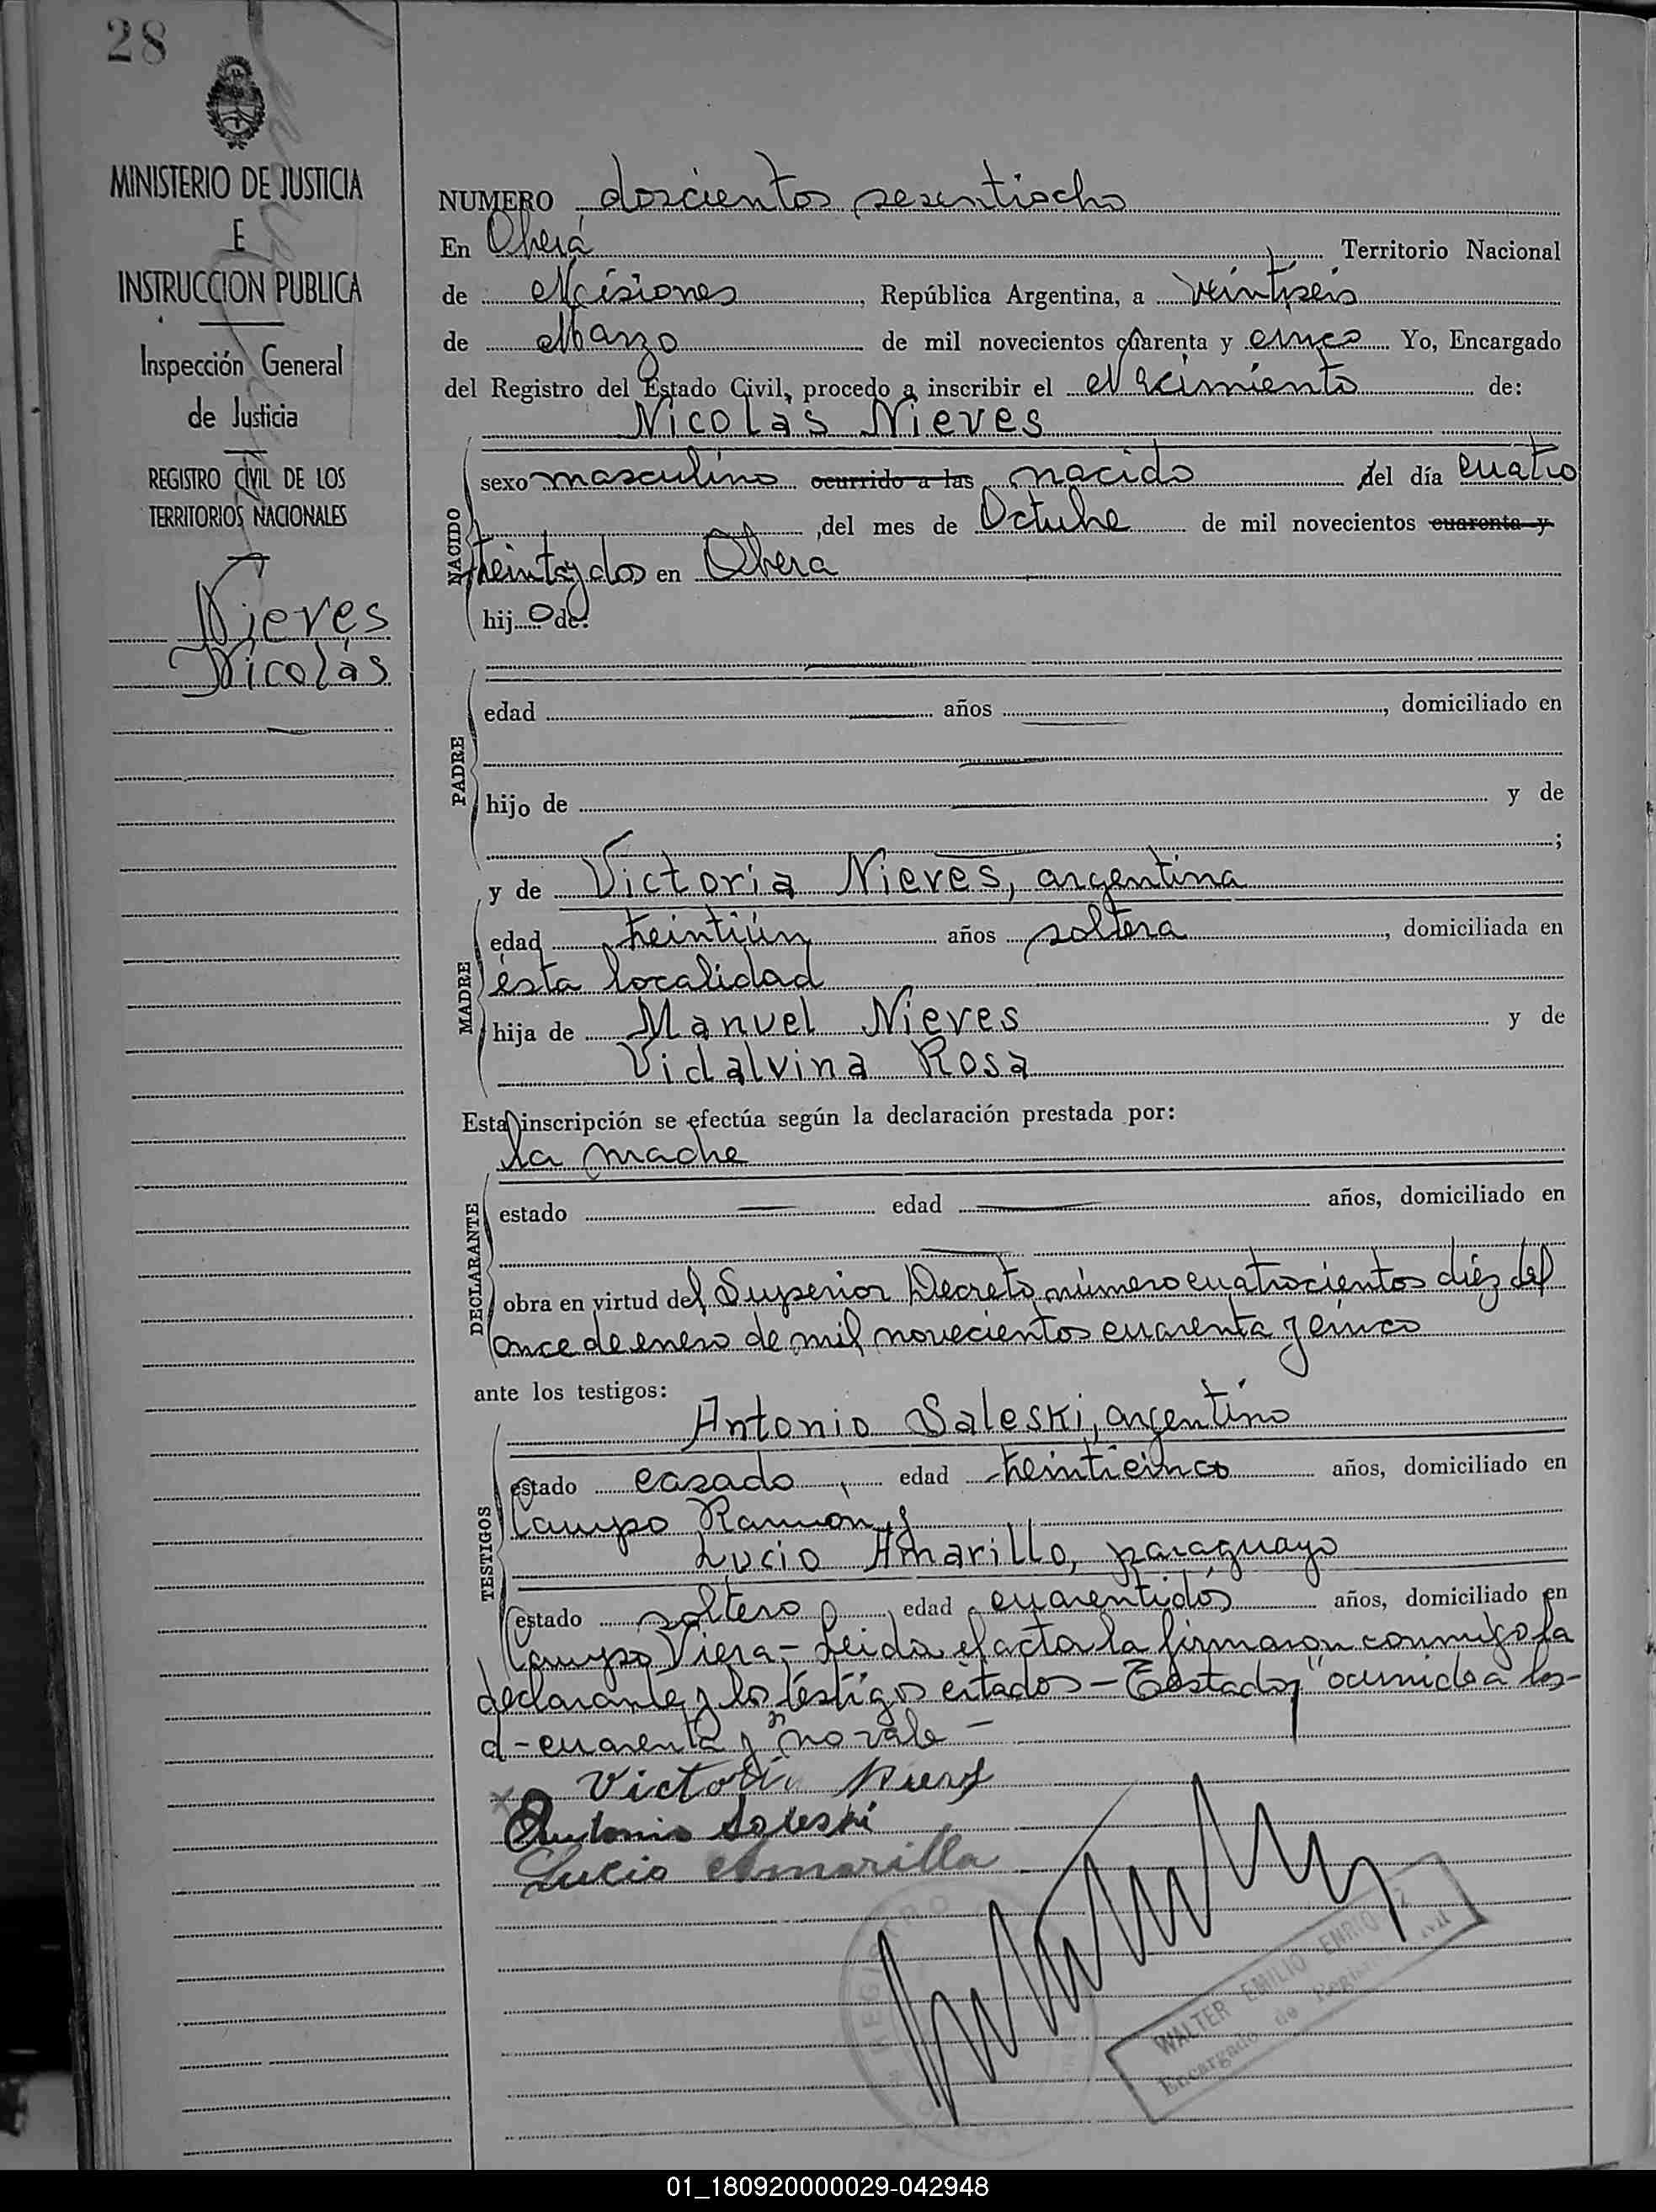 28
MINISTERIO DE JUSTICIA
E
INSTRUCCION PUBLICA
Inspección General
de Justicia
REGISTRO CIVIL DE LOS
TERRITORIOS NACIONALES
Nieves
Nicolás
NUMERO doscientos sesentiocho
En Oberá Territorio Nacional
de Misiones, República Argentina, a veintiseis
de Marzo de mil novecientos cuarenta y cinco Yo, Encargado
del Registro del Estado Civil, procedo a inscribir el Nacimiento de:
Nicolás Nieves
NACIDO
sexo masculino ocurrido a las nacido del día cuatro
,del mes de Octubre de mil novecientos cuarenta y
treintaydos en Obera
hijo de:
PADRE
edad años , domiciliado en
hijo de y de
;
y de Victoria Nieves, argentina
MADRE
edad treintiún años soltera, domiciliada en
ésta localidad
hija de Manuel Nieves y de
Vidalvina Rosa
Esta inscripción se efectúa según la declaración prestada por:
la madre
DECLARANTE
estado edad años, domiciliado en
obra en virtud del Superior Decreto número cuatrocientos diéz del
once de enero de mil novecientos cuarenta y cinco
ante los testigos:
Antonio Saleski, argentino
TESTIGOS
estado casado, edad treinticinco años, domiciliado en
Campo Ramon y
Lucio Amarillo, paraguayo
estado soltero, edad cuarentidós años, domiciliado en
Campo Viera - Leida el acta la firmaron conmigo la
declarante y los testigos citados - Testado "ocurrido a las-
d-cuarenta y" no vale -
Victoria Nieves
Antonio Saleski
Lucio Amarilla
REGISTRO
WALTER EMILIO
Encargado de Registro Civil
01_180920000029-042948